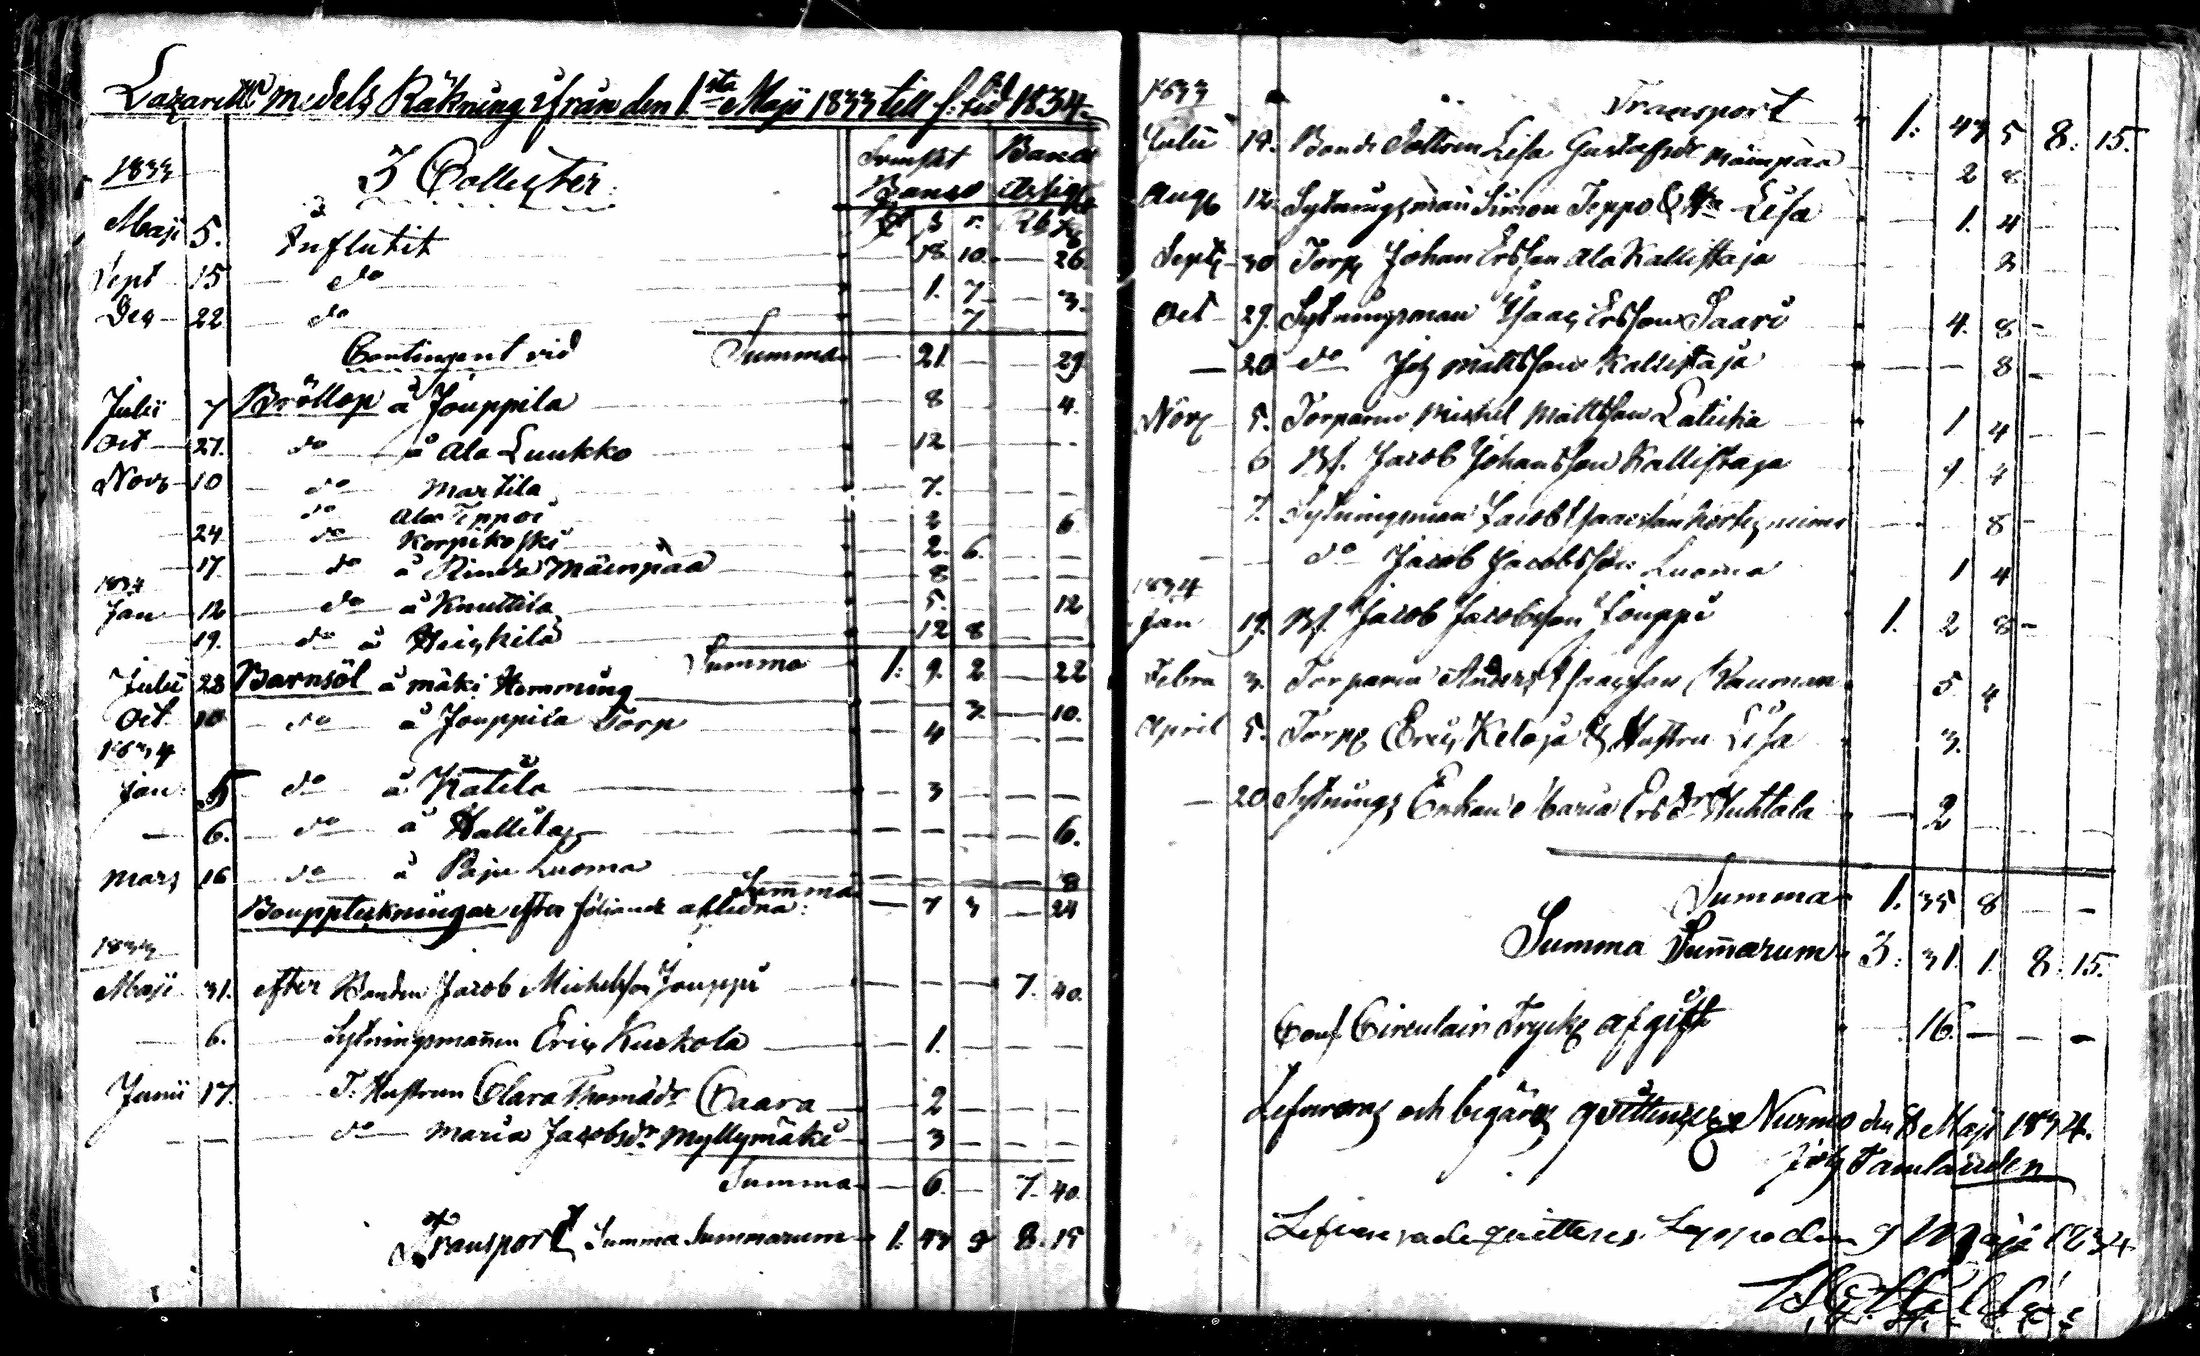 Lazaretts medels Räkning ifrån den 1sta Maji 1833 till s. tid 1834.
1833 3 Collecter: Banco
Rd s r. Rd s
Maji 5. Influtit — 18 10. — 26.
Sept 15 do — 1. 7 — 3.
Dec 22. do — 7
Contingent vid Summa — 21 — 29
Julii 7 Bröllop å Jouppila — 8 — 4.
Oct 27. do å Ala Luukko — 12
Nov 10 do Martila — 7.
do Ala Teppoi — 2 6.
24. do Korpikoski — 2. 6.
17. do å Mäenpää — 8
1834
Jan 12 do å Knuttila — 5. 12
19. do å Heickilä — 12 8
Summa 1: 9. 2 — 22
Julii 28 Barnsöl å Mäki Hemming — 7. — 10.
Oct. 10 do å Jouppila Torp — 4
1834
Jan: 5 do å Katila — 3
— 6. do å Hallila — 6.
Mars 16 do å Luoma — 8
Summa — 7 7 — 24
Bouppteckningar efter följande aflidna:
1833
Maji 31. efter Bonden Jacob Michelsson Jouppi — 7. 40.
6. Sytningsmannen Eric Kuckola — 1.
Junii 17. T. Hustrun Clara Thomasdr Caara — 2
do Maria Jacobsdr Myllymäki — 3
Summa — 6. — 7. 40.
Transport Summa Summarum 1. 47 5 8. 15
1833 Transport 1: 47 5 8: 15.
Julii 14. Bonde Lisa Gustafsdr Mäenpää — 2 8
Aug 12. Sytningsman Simon Teppo & Lisa — 1. 4
Sept 30 Torp Johan Ersson Ala Kallistaja — 2
Oct 29. Sytningsman Isaac Ersson Saari — 4. 8
— 20 do Joh Mattsson Kallistaja — 8
Nov 5. Torparen Michel Mattsson — 1 4
6 Jacob Johansson Kallistaja — 1 4
7. Sytningsman Jacob Isaacsson — 8
do Jacob Jacobsson Luoma — 1 4
1834
Jan 19. Jacob Jacobsson Jouppi 1. 2 8
Febru 3. Torparen Anders Isaacsson — 5 4
April 5. Torp Eric Ketoja & Hustru Lisa — 3.
— 20 Sytnings Enkan Maria Ersdr Huhtala — 2
Summa 1. 35 8
Summa Summarum 3: 31. 1. 8. 15.
Circulair Tryck afgift — 16.
och begäres Nurmo den 8 Maji 1834.
Joh Tamlander
quitteras Lappo den 9 Maji 1834